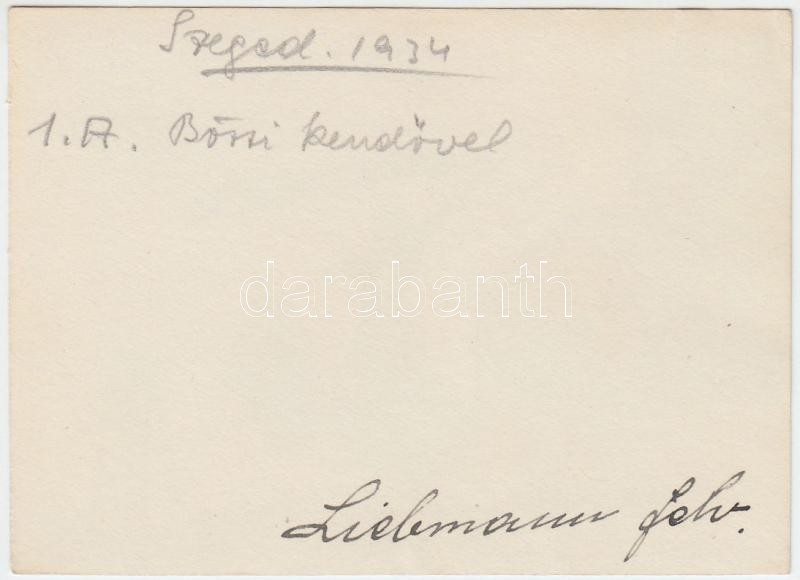 Szeged. 1934
1. A. Bözsi kendövel
darabanth
Liebmann felv.